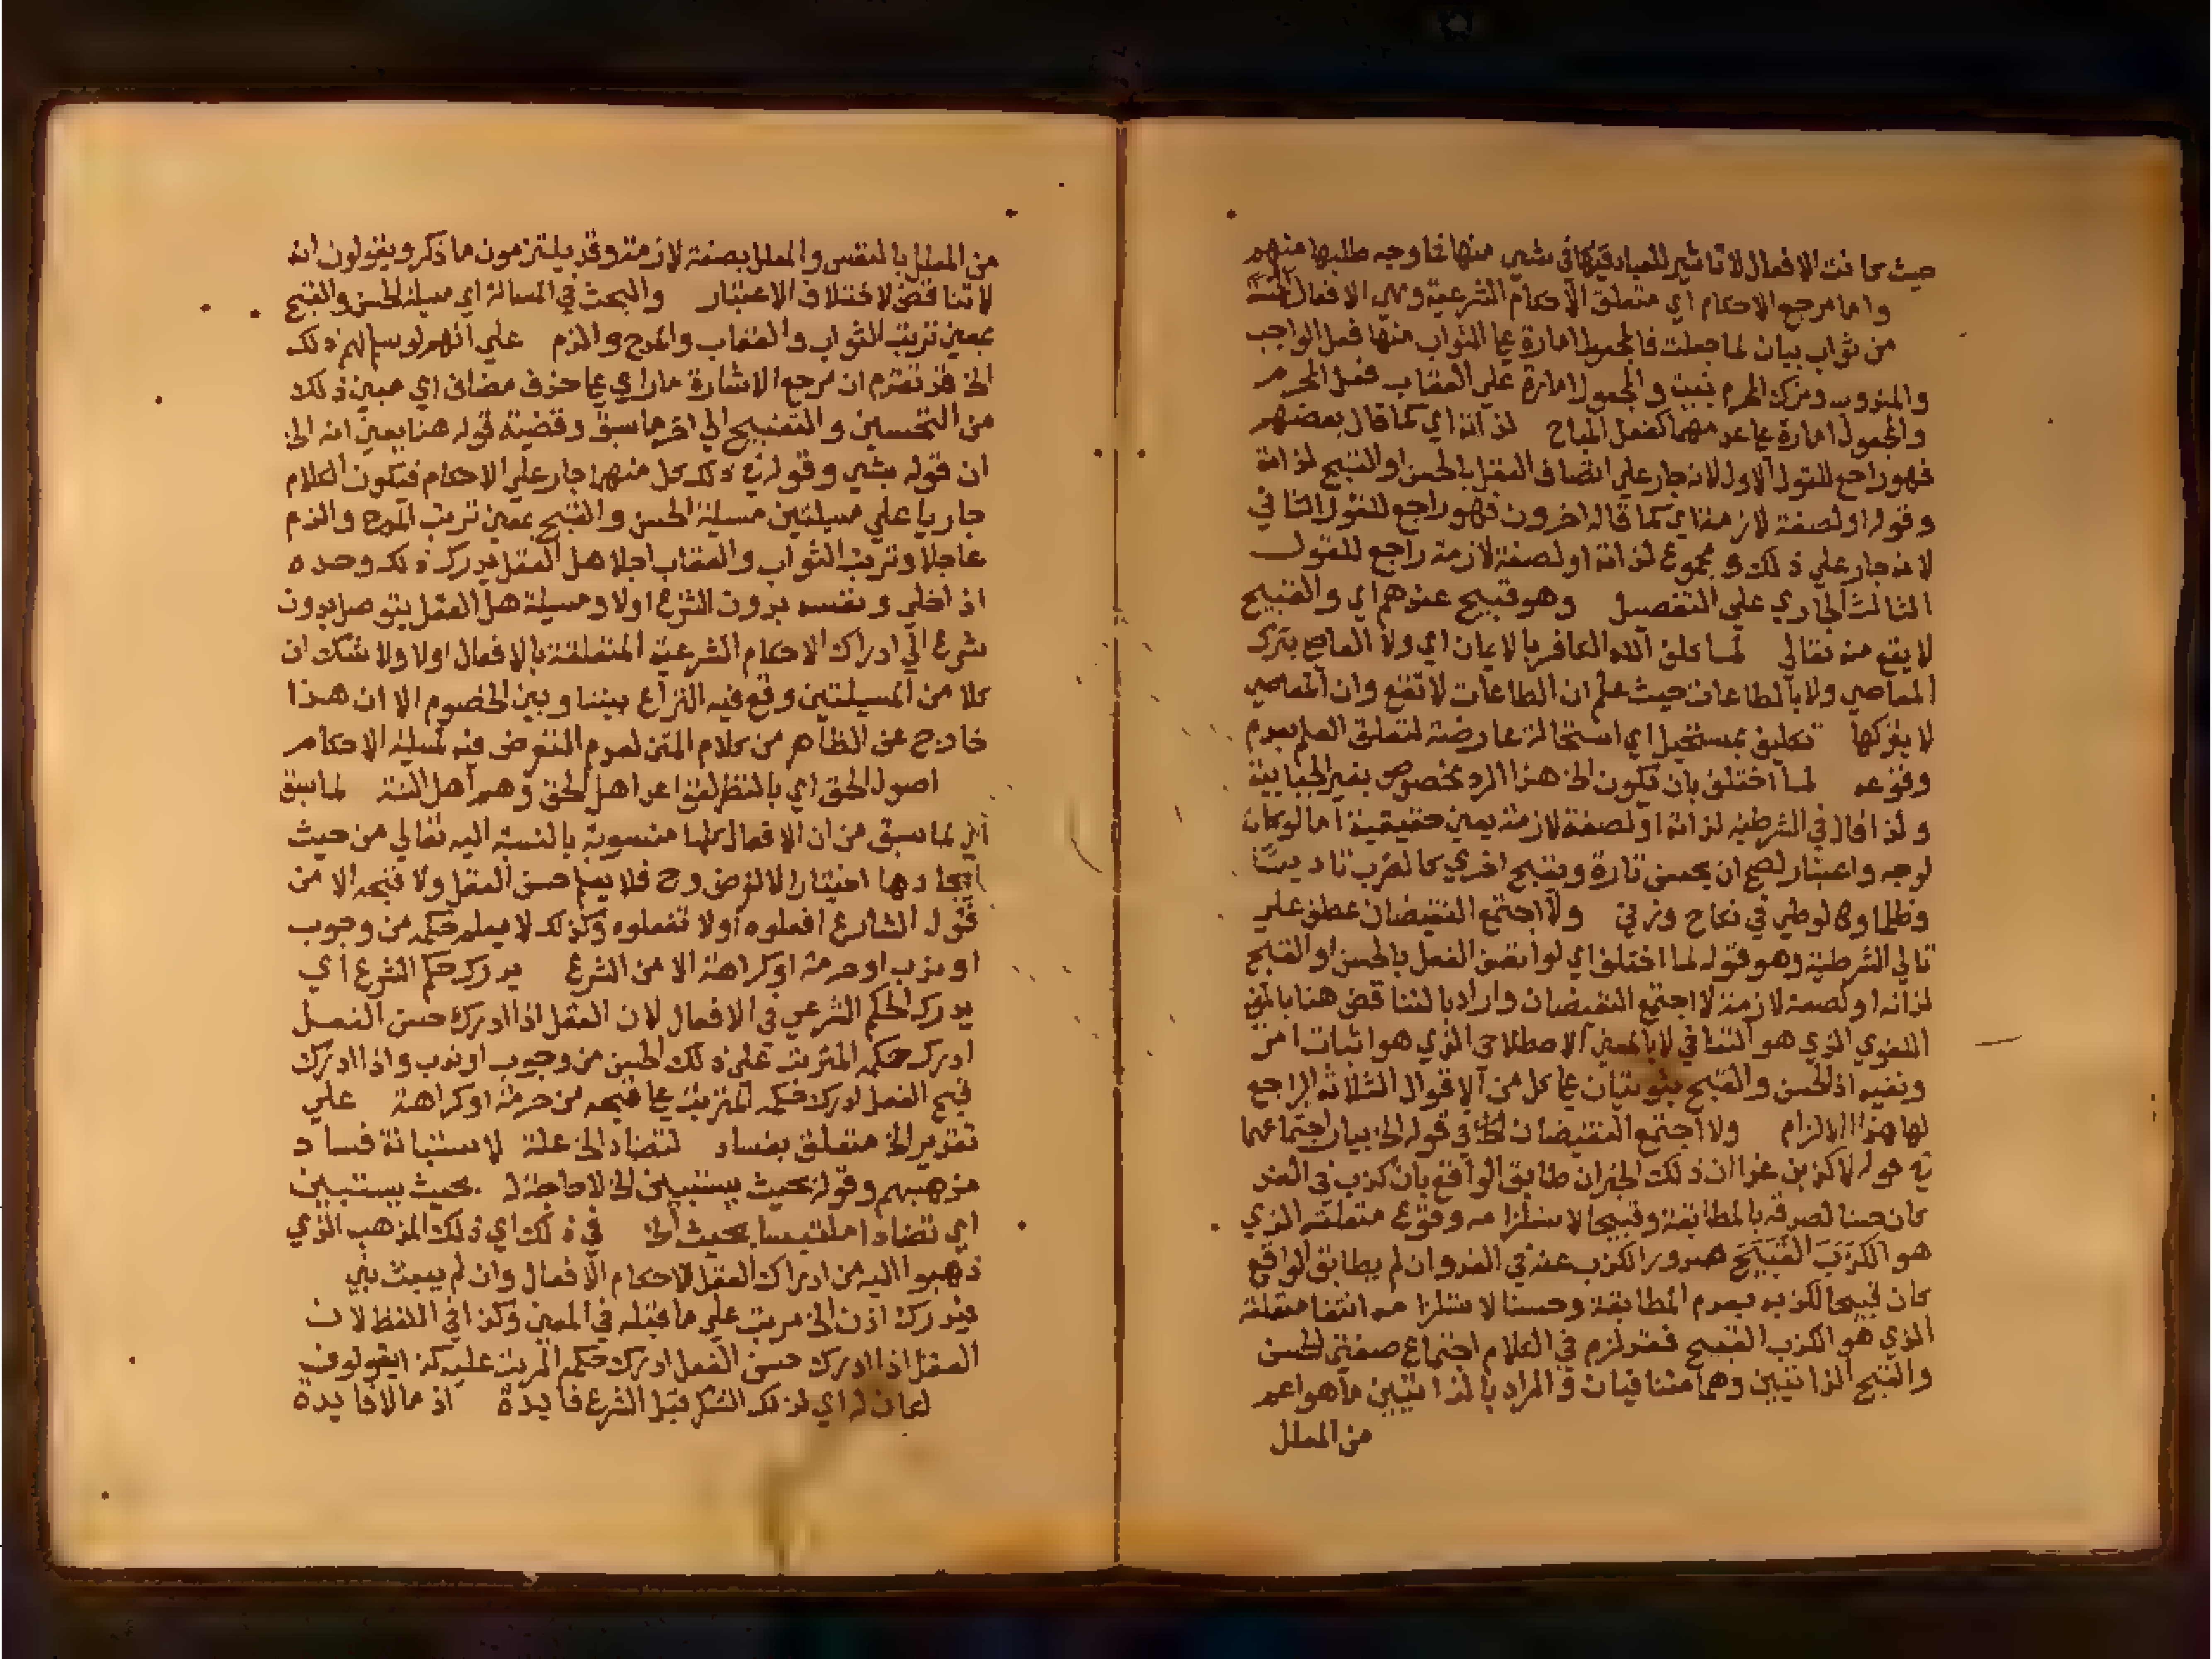 حيث كانت الافعال لا تاثير للعباد فيها في شيء منها فما وجه طلبها منهم
واما مرجع الاحكام اي متعلق الاحكام الشرعية وهي الافعال
من ثواب بيان لما جعلت فالمجعول امارة على الثواب منها فعل الواجب
والمندوب وترك المحرم بنيت والمجعول امارة على العقاب فعل المحرم
والمجعول امارة على عدمهما كفعل المباح لذاته اي كما قال بعضهم
فهو راجع للقول الاول لانه جار على اتصاف الفعل بالحسن او القبح لذاته
وقوله او لصفة لازمة اي كما قاله اخرون فهو راجع للقول الثاني
لانه جار على ذلك ومجموع لذاته او لصفة لازمة راجع للقول
الثالث الجاري على التفصيل وهو قبيح عندهم اي والقبيح
لا يقع منه تعالى لما كلف الله الكافر بالايمان اي ولا العاصي بترك
المعاصي ولا بالطاعات حيث علم ان الطاعات لا تقع وان المعاصي
لا يتركها تكليف بمستحيل اي استحالة عارضة لتعلق العلم بعدم
وقوعه لما اختلف بان تكون الخ هذا الرد مخصوص بغير الجبايية
ولذا قال في الشرطية لذاته او لصفة لازمة يعني حقيقية اما لو كان
لوجه واعتبار لصح ان يحسن تارة ويقبح اخري كالضرب تاديبا
وظلما وكالوطي في نكاح وزني ولاجتمع النقيضان عطف على
تالي الشرطية وهو قوله لما اختلف اي لو اتصف الفعل بالحسن او القبح
لذاته او لصفة لازمة لاجتمع النقيضان واراد بالتناقض هنا بالمعنى
اللغوي الذي هو التنافي لا بالمعنى الاصطلاحي الذي هو اثبات امر
ونفيه اذ الحسن والقبح ثبوتيان على كل من الاقوال الثلاثة الراجع
لها هذا الالزام ولاجتمع النقيضان الخ في قوله الخ بيان اجتماعهما
في قوله لاكذبن غدا ان ذلك الخبر ان طابق الواقع بان كذب في الغد
كان حسنا لصدقه بالمطابقة وقبيحا لاستلزامه وقوع متعلقه الذي
هو الكذب القبيح صدور الكذب عنه في الغد وان لم يطابق الواقع
كان قبيحا لكذبه بعدم المطابقة وحسنا لاستلزامه انتفا متعلقه
الذي هو الكذب القبيح فقد لزم في الكلام اجتماع صفتي الحسن
والقبح الذاتيين وهما متنافيان والمراد بالذاتيين ما هو اعم
من المعلل
من المعلل بالنفس والمعلل بصفة لازمة وقد يلتزمون ما ذكر ويقولون انه
لا تناقض لاختلاف الاعتبار والبحث في المسالة اي مسيلة الحسن والقبح
بمعني ترتب الثواب والعقاب والمدح والذم على انهم لو سلم لهم ذلك
الخ قد تقدم ان مرجع الاشارة مار اي على حذف مضاف اي مبني ذلك
من التحسين والتقبيح الي اخر ما سبق وقضية قوله هنا يعني انه الخ
ان قوله بشي وقوله في ذلك كل منهما جار على الاحكام فيكون الكلام
جاريا على مسيلتين مسيلة الحسن والقبح بمعني ترتب المدح والذم
عاجلا وترتب الثواب والعقاب اجلا هل العقل يدرك ذلك وحده
اذ اخلي ونفسه بدون الشرع اولا ومسيلة هل العقل يتوصل بدون
شرع الي ادراك الاحكام الشرعية المتعلقة بالافعال اولا ولا شك ان
كلا من المسيلتين وقع فيه النزاع بيننا وبين الخصوم الا ان هذا
خارج عن الظاهر من كلام المتن لعدم التعرض فيه لمسيلة الاحكام
اصول الحق اي بالنظر لقواعد اهل الحق وهم اهل السنة لما سبق
اي لما سبق من ان الافعال كلها منسوبة بالنسبة اليه تعالي من حيث
ايجادها اختيارا لا لغرض وح فلا يعلم حسن الفعل ولا قبحه الا من
قول الشارع افعلوه او لا تفعلوه وكذلك لا يعلم حكمه من وجوب
او ندب او حرمة او كراهة الا من الشرع يدرك حكم الشرع اي
يدرك الحكم الشرعي في الافعال لان العقل اذا ادرك حسن الفعل
ادرك حكمه المترتب على ذلك الحسن من وجوب او ندب واذا ادرك
قبح الفعل ادرك حكمه المترتب على قبحه من حرمة او كراهة علي
تقدير الخ متعلق بفساد لتضاد الخ علة لاستبانة فساد
مذهبهم وقوله بحيث يستبين الخ لا حاجة له بحيث يستبين
اي تضادا ملتبسا بحيث الخ في ذلك اي ذلك المذهب الذي
ذهبوا اليه من ادراك العقل لاحكام الافعال وان لم يبعث نبي
فيدرك اذن الخ مرتب على ما قبله في المعني وكذا في اللفظ لان
العقل اذا ادرك حسن الفعل ادرك حكمه المرتب عليه كذا يقولون
لكان له اي لذلك الشكر قبل الشرع فايدة اذ ما لا فايدة